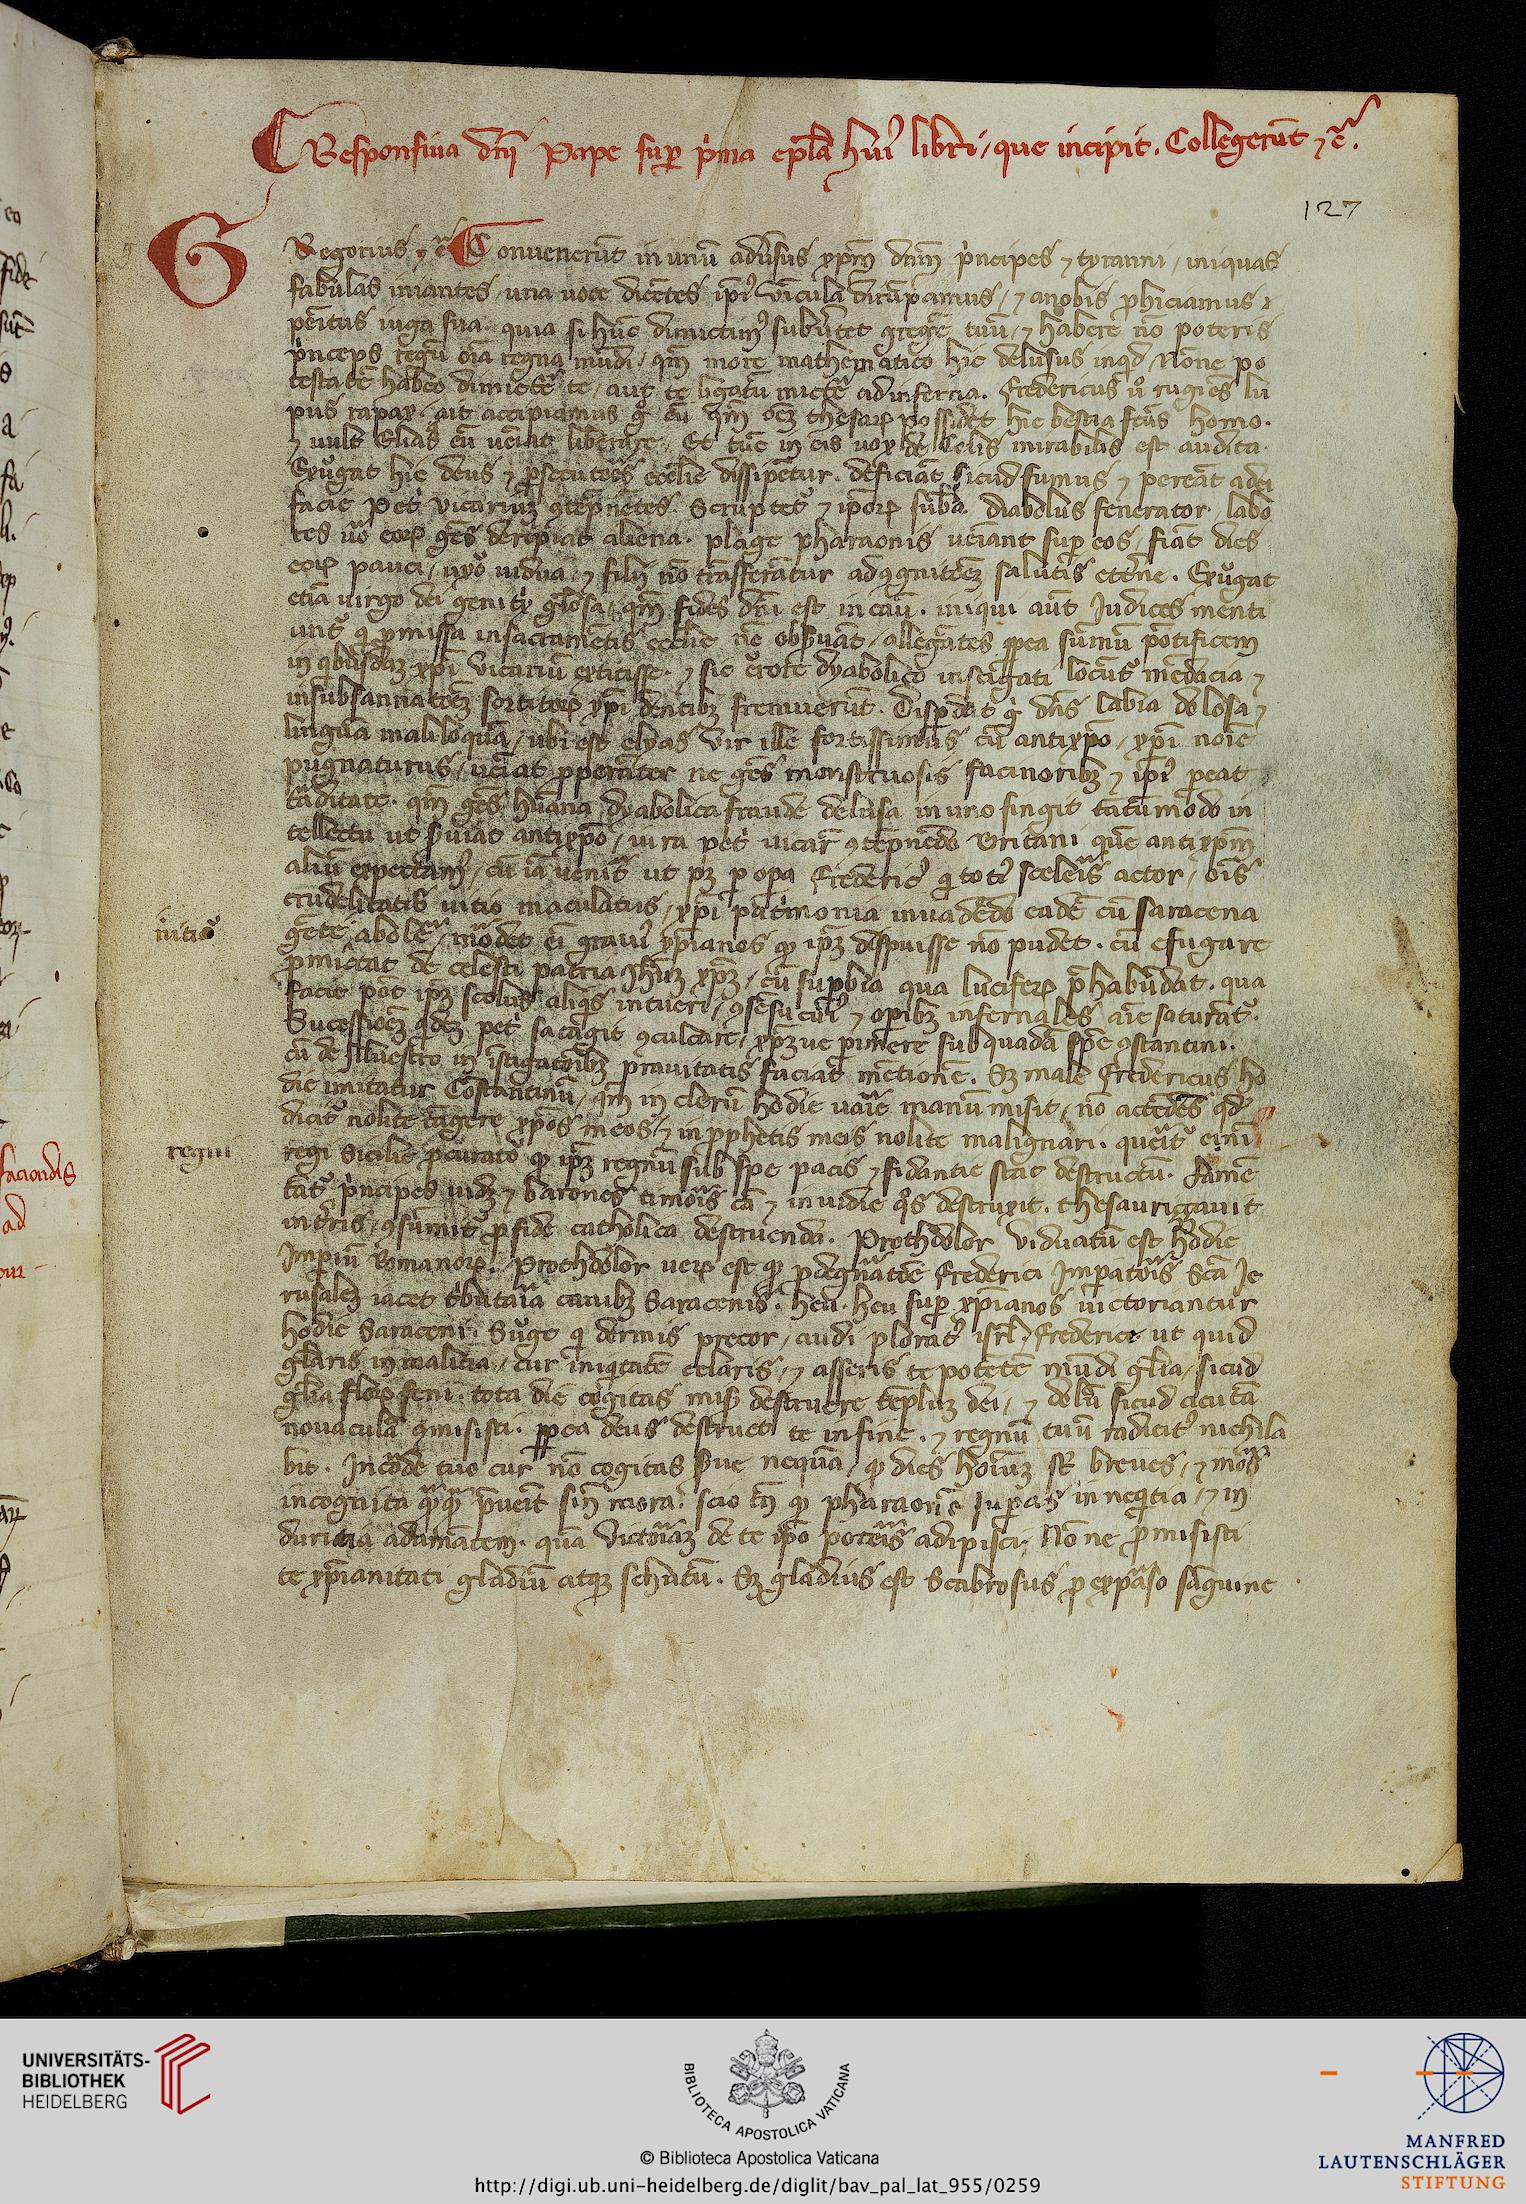 Responsiua dn̄i Pape sup p̄ma epl̄a huiꝰ libri, que incipit. Collegerūt ⁊c̄.
127
Gregorius ⁊c̄ Conuenerūt in unū aduersus xp̄m dn̄m p̄ncipes ⁊ tyranni, iniquas
fabulas una uoce dicētes ip̄iꝰ vincula dirūpamus, ⁊ anobis phiciamus
penitus iuga sua quia si hūc dimictimꝰ subūtet gregē tuū, ⁊ habere nō poteris
p̄nceps regū oīa regna mūdi, qm̄ more mathematico hic delusus inqd, Nōne po
testatē habeo dimictē te, aut te ligatū mictē ad inferna. Fredericus ū rugiēs lu
pus rapax. ait accipiamus g̊ eū possidet hic bestia hōmo.
⁊ uult Elias eū ueniat liberare. Et tūc in eis uox de Celis mirabilis est audita.
Exurgat hic deus ⁊ psecutores eccl̄ie dissipētur. deficiāt sicud fumus ⁊ pereāt a dei
facie Pet̄ Vicariuꝫ ꝯtēpnētes. Scruptet᷑ ⁊ ip̄oꝝ sub̄a diabolus fenerator labo
res ū eoꝝ gēs deripiat aliena. plage pharaonis ueniant sup eos, fiāt dies
eoꝝ pauci, uxor uidua, ⁊ filij nō trāsferātur ad ꝯgnitōeꝫ salutis etēne. Exurgat
etiā uirgo dei genit̄x gl̄osa, qm̄ fides dn̄i est in eaū. iniqui aūt Iudices menti
unt᷑ q pmissa in sacramētis eccl̄ie nō obseruāt, allegātes ppea sūmū pōtificem
in qbusdaꝫ xp̄i Vicariū extitisse. ⁊ sic dyabolico instigati locūt᷑ mēdacia ⁊
in subsannatōeꝫ xp̄i dentibꝫ fremuerūt. Disperdat g̊ dn̄s labia dolosa ⁊
linguā maliloquā, ubi est elyas Vir ille fortissimus cū antixp̄o, xp̄i noīe
pugnaturus, ueniat ꝓperāter ne gēs monstruosis facinoribꝫ ⁊ ip̄iꝰ peat
tarditate. qm̄ gēs hūana dyabolica fraude delusa in uno fingit tātūmodo in
tellectu ut seruiat antixp̄o, iura pet̄ uicar̄ ꝯtēpnēdo quē antixp̄m
aliū expectamꝰ, cū iā uenit ut pꝫ p opa Fredericꝰ q totiꝰ sceleris actor, oīs
crudelitatis uitio maculatus, xp̄i patrimonia inuadēdo eadē cū Saracena
initio
gēte abole mordet eī grauiꝰ xp̄ianos ꝙ ip̄ꝫ despuisse nō pudet. cū efugare
pmictat de celesti patria xp̄ꝫ, cū supbia qua luciferꝝ p̄habūdat. qua
facie pōt ip̄ꝫ scelus aliqs intueri, ꝯsēsu cuiꝰ ⁊ opibꝫ infernales aīe saturāt᷑.
Sucessioeꝫ qdeꝫ pet̄ satagit ꝯculcare, xp̄ꝫue pimere sub quadā spē ꝯstantini.
cū de siluestro in īstigatoribꝫ prauitatis faciat mētionē. Sꝫ male Fredericus ho
die imitatur Costantinū, qm̄ in clerū hodie uarie manū misit, nō actēdēs qd
dicit᷑ nolite tāgere xp̄os meos, ⁊ in pphetis meis nolite malignari. querit᷑ enim
regni
regi Sicilie pcurato ꝙ ip̄ꝫ regnū sub spe pacis ⁊ fidantie stat destructū. Famē
tāt᷑ p̄ncipes uidꝫ ⁊ barones timoris cā ⁊ inuidie qs destruxit. thesaurizauit
in t̄ris, ꝯsumit᷑ ꝓ fide catholica destruenda. Prothdolor Viduatū est hodie
Imperiū Romanoꝝ. Prothdolor ueꝝ est ꝙ p degnatōe Frederici Imperatoris Sc̄a Je
rusaleꝫ iacet tributaria canibꝫ Saracenis. heu. heu sup xp̄ianos uictoriantur
hodie Saraceni. Surge q dormis precor, audi ploratꝰ isrl. Frederice ut quid
gl̄aris in malitia, cur iniqtatē celaris, ⁊ asseris te potētē mūdi gl̄ia, sicud
gl̄ia floꝝ feni. tota die cogitas destruere tēpluꝫ dei, ⁊ dolū sicud acutā
nouaculā ꝯmisisti. ppea deus destruet te in fine. ⁊ regnū tuū radicitꝰ nichila
bit. In corde tuo cur nō cogitas serue nequā, ꝙ dies hoīuꝫ st̄ breues, ⁊ mors
incognita qꝫqꝫ pueit sine mora. scio tn̄ ꝙ pharaonē superas in neqtia, ⁊ in
duritia adamātem. quā Victoriaꝫ de te ip̄o poteris adipisci. Nōne promisisti
te xp̄ianitati gladiū atqꝫ schutū. Sꝫ gladius est Scabrosus ꝓ expāso sāguine
UNIVERSITÄTS-
BIBLIOTHEK
HEIDELBERG
BIBLIOTECA APOSTOLICA VATICANA
© Biblioteca Apostolica Vaticana
http://digi.ub.uni-heidelberg.de/diglit/bav_pal_lat_955/0259
MANFRED
LAUTENSCHLÄGER
STIFTUNG